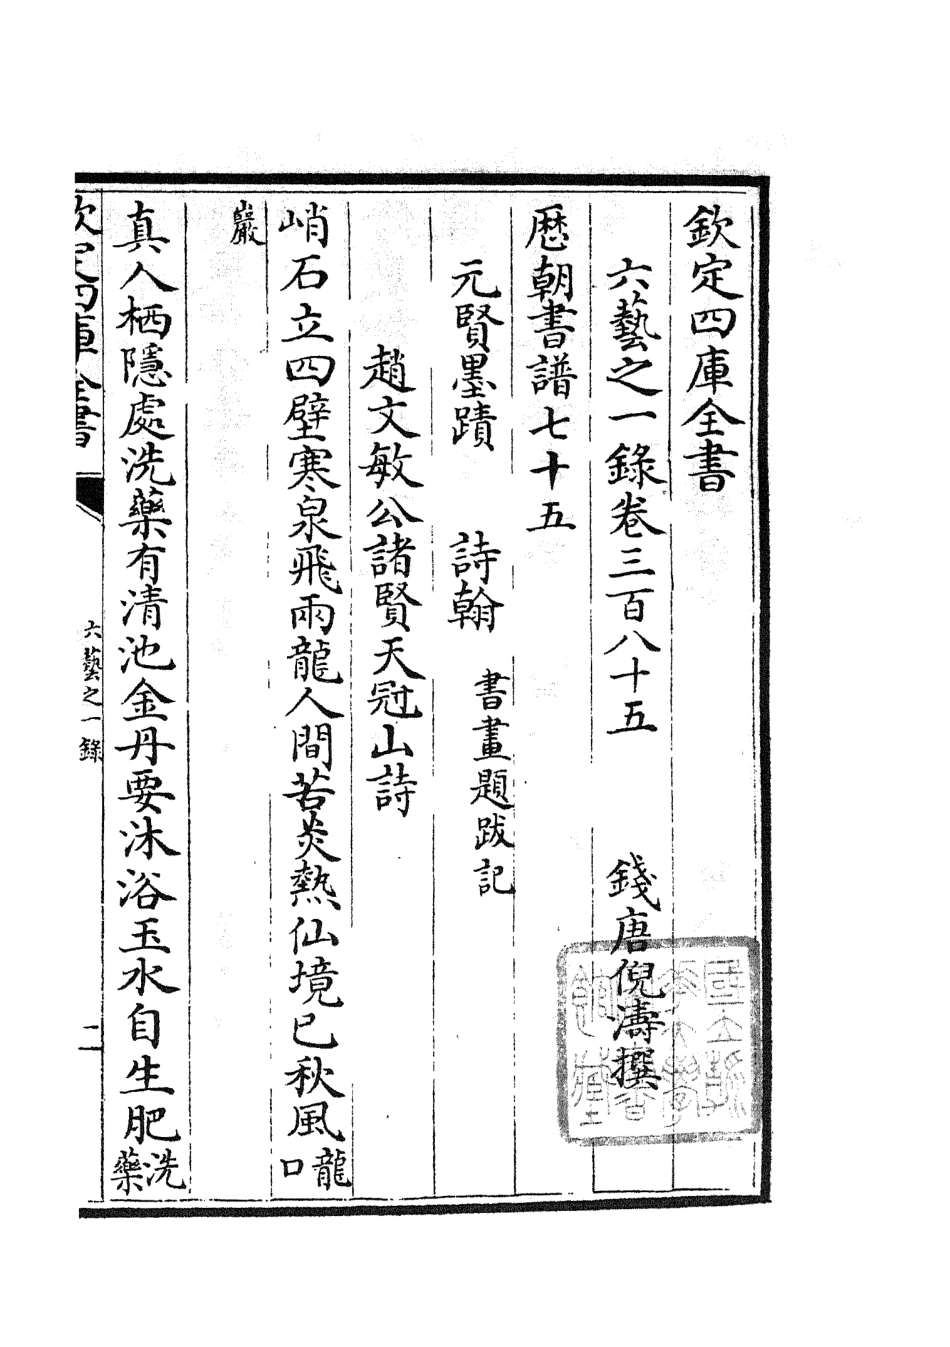 欽定四庫全書
六藝之一錄卷三百八十五　錢唐倪濤撰
歴朝書譜七十五
元賢墨蹟　詩翰　書畫題跋記
趙文敏公諸賢天冠山詩
峭石立四壁寒泉飛兩龍人間苦炎熱仙境已秋風龍口
巖
真人栖隱處洗藥有清池金丹要沐浴玉水自生肥洗藥
欽定四庫全書
六藝之一錄
二